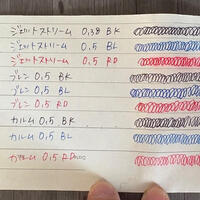 ジェットストリーム 0.38 BK
ジェットストリーム 0.5 BL
ジェットストリーム 0.5 RD
ブレン 0.5 BK
ブレン 0.5 BL
ブレン 0.5 RD
カルム 0.5 BK
カルム 0.5 BL
カルム 0.5 RD